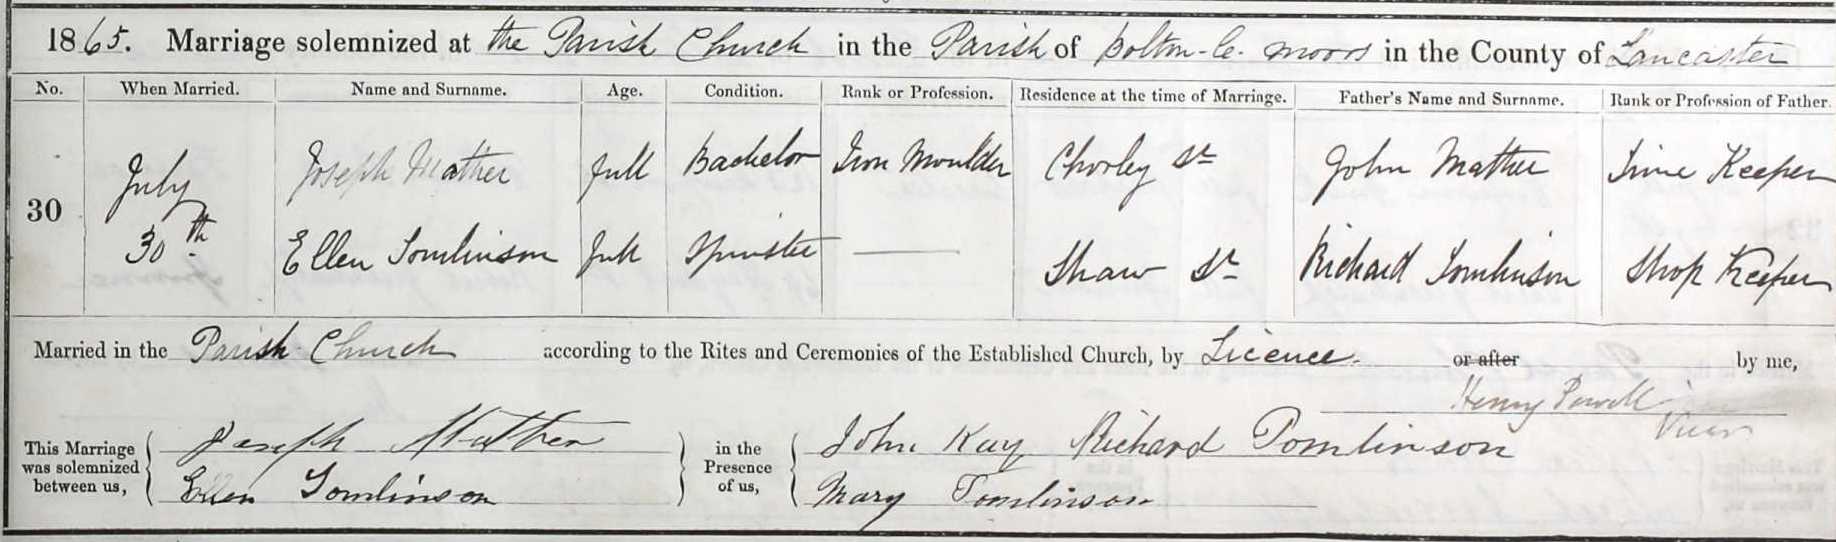 1865. Marriage solemnized at the Parish Church in the Parish of Bolton-le-Moors in the County of Lancaster
No. When Married. Name and Surname. Age. Condition. Rank or Profession. Residence at the time of Marriage. Father's Name and Surname. Rank or Profession of Father.
30 July 30th. Joseph Mather Full Bachelor Iron Moulder Chorley St John Mather Time Keeper
Ellen Tomlinson Full Spinster Shaw St Richard Tomlinson Shop Keeper
Married in the Parish Church according to the Rites and Ceremonies of the Established Church, by Licence. or after by me,
Henry Powell
Vicar
This Marriage was solemnized between us, Joseph Mather in the Presence of us, John Kay Richard Tomlinson
Ellen Tomlinson Mary Tomlinson